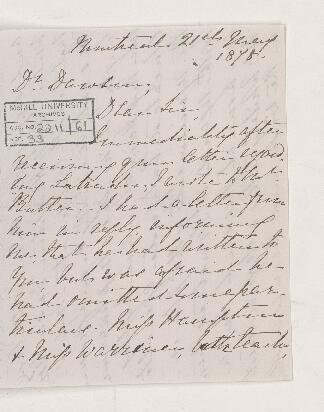 Montreal 21st May
1878.
Dr Dawson,
McGILL UNIVERSITY
ARCHIVES
ACC. NO. 2211/61
REF. 33
Dear Sir,
Immediately after
receiving your letter regard
ing I wrote to Mr
I had a letter from
him in reply, informing
me that he had written to
you but was afraid he
had omitted some par-
ticulars. Miss Hampton
& Miss Warriner, both teach,